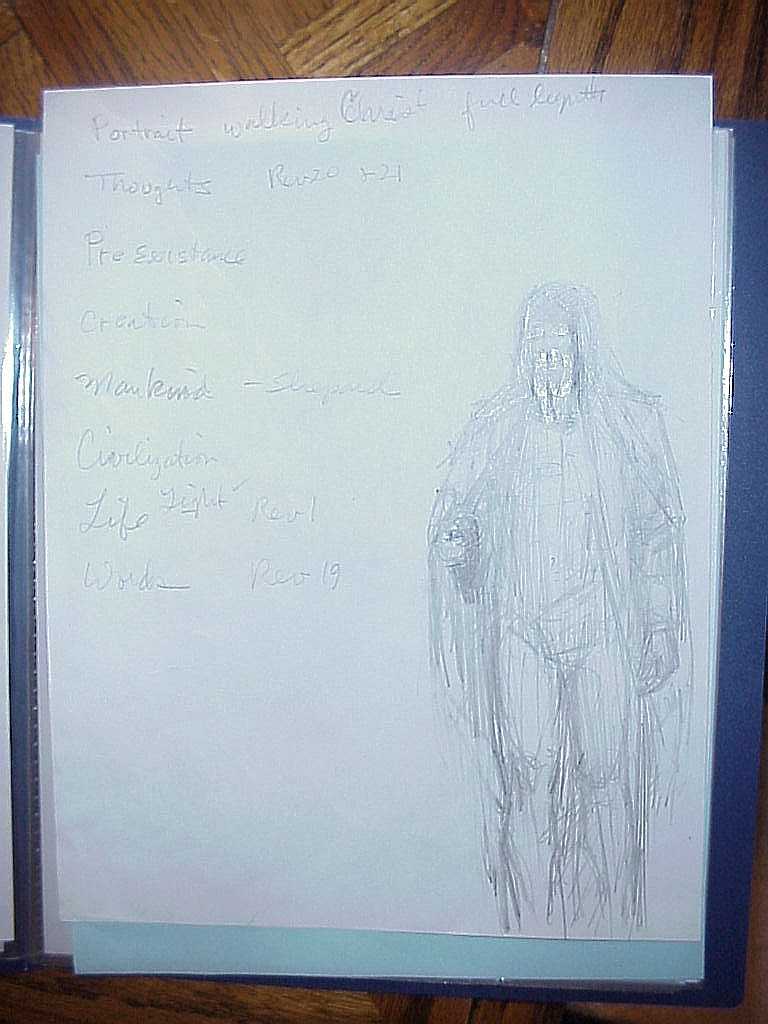 Portrait walking Christ full length
Thoughts Rev 20 + 21
Pre existance
Creation
Mankind - Shepard
Civilization
Life Light Rev 1
Words Rev 19